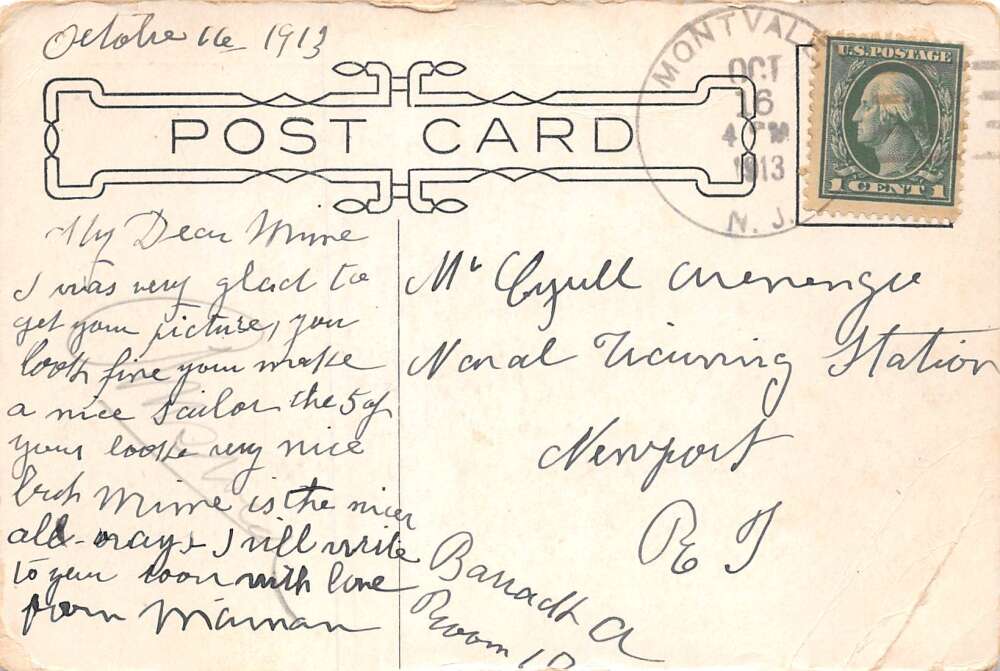 Octobre 16 1913
POST CARD
MONTVALE
OCT
16
4 PM
1913
N. J.
U.S. POSTAGE
1 CENT 1
My Dear Mime
I was very glad to
get your picture, you
look fine your make
a nice sailor the 5 of
your looke very nice
but Mime is the nicer
all-ways I will write
to your soon with love
from Maman
Mr Cyrill
Naval Station
Newport
R I
Barrack A
Room 10